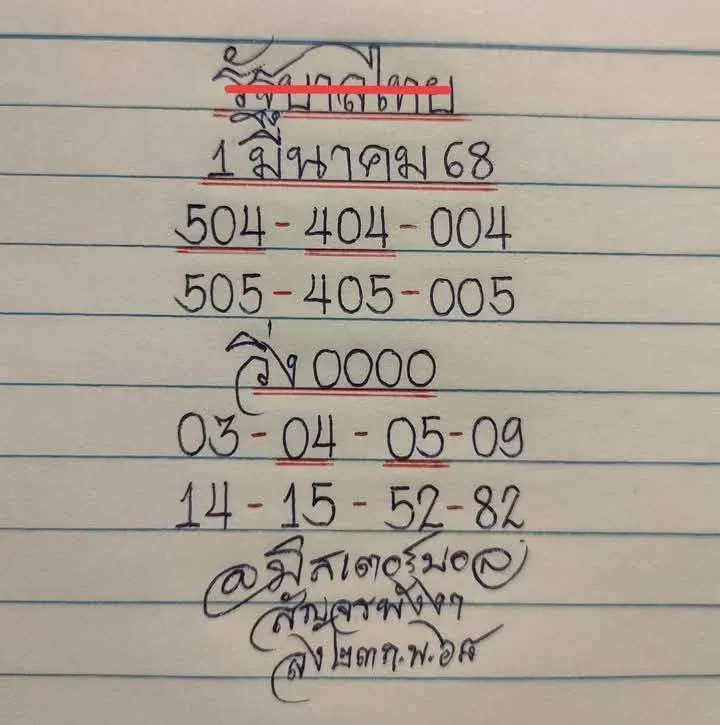 รัฐบาลไทย
1 มีนาคม 68
504-404-004
505-405-005
วิ่ง 0000
03-04-05-09
14-15-52-82
@มิสเตอร์บอล
สัญจรพังงา
ลง ๒๓ ก.พ. ๖๘